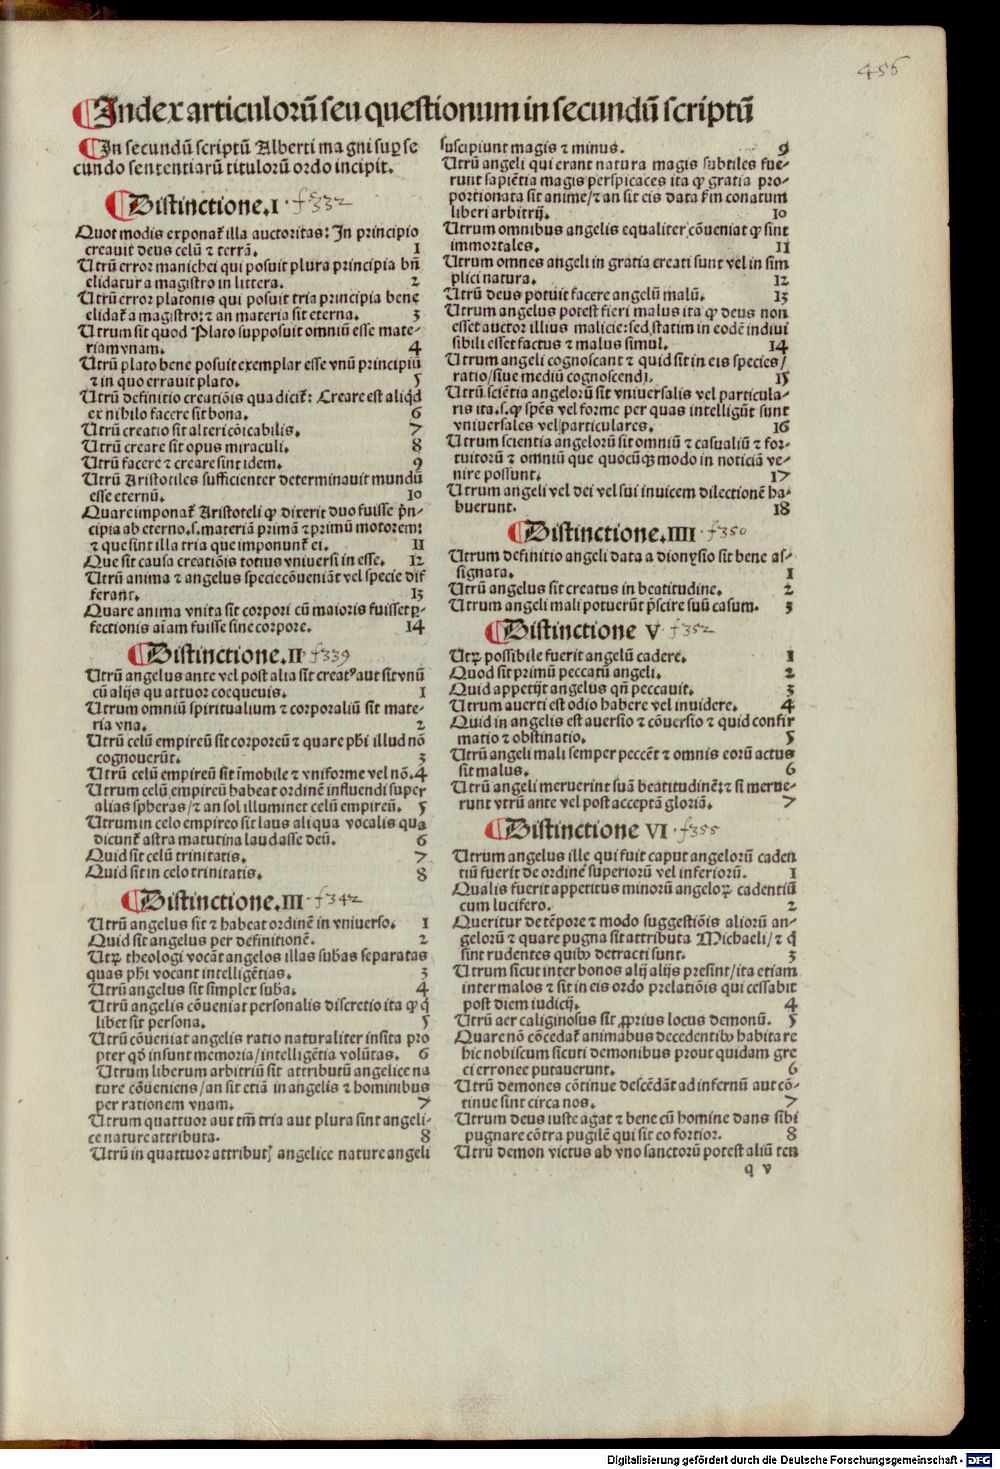 456
Index articuloꝝ̄ seu questionum in secundū scriptū
In secundū scriptū Alberti magni suꝑ se
cundo sententiarū titulorū ordo incipit.
Distinctione.I. f 332
Quot modis exponat̃ illa auctoritas: In principio
creauit deus celū ⁊ terrā. 1
Utrū error manichei qui posuit plura principia bñ
elidatur a magistro in littera. 2
Utrū error platonis qui posuit tria principia bene
elidat̃ a magistro: ⁊ an materia sit eterna. 3
Utrum sit quod Plato supposuit omniū esse mate-
riam vnam. 4
Utrū plato bene posuit exemplar esse vnū principiū
⁊ in quo errauit plato. 5
Utrū definitio creatiōis qua dicit̃: Creare est aliqd
ex nihilo facere sit bona. 6
Utrū creatio sit alteri cōicabilis. 7
Utrū creare sit opus miraculi. 8
Utrū facere ⁊ creare sint idem. 9
Utrū Aristotiles sufficienter determinauit mundū
esse eternū. 10
Quare imponat̃ Aristoteli ꝙ dixerit duo fuisse p̄n-
cipia ab eterno.s.materiā primā ⁊ primū motorem:
⁊ que sint illa tria que imponunt̃ ei. 11
Que sit causa creatiōis totius vniuersi in esse. 12
Utrū anima ⁊ angelus specie cōueniāt vel specie dif
ferant. 13
Quare anima vnita sit corpori cū maioris fuisset ꝑ-
fectionis aīam fuisse sine corpore. 14
Distinctione.II. f 339
Utrū angelus ante vel post alia sit creatꝰ aut sit vnū
cū alijs quattuor coequeuis. 1
Utrum omniū spiritualium ⁊ corporaliū sit mate-
ria vna. 2
Utrū celū empireū sit corporeū ⁊ quare phi illud nō
cognouerūt. 3
Utrū celū empireū sit īmobile ⁊ vniforme vel nō. 4
Utrum celū empireū habeat ordinē influendi super
alias spheras/⁊ an sol illuminet celū empireū. 5
Utrum in celo empireo sit laus aliqua vocalis qua
dicunt̃ astra matutina laudasse deū. 6
Quid sit celū trinitatis. 7
Quid sit in celo trinitatis. 8
Distinctione.III. f 342
Utrū angelus sit ⁊ habeat ordinē in vniuerso. 1
Quid sit angelus per definitionē. 2
Utꝝ theologi vocāt angelos illas subas separatas
quas phi vocant intelligētias. 3
Utrū angelus sit simplex suba. 4
Utrū angelis cōueniat personalis discretio ita ꝙ q̄
libet sit persona. 5
Utrū cōueniat angelis ratio naturaliter insita pro
pter qd̄ insunt memoria/intelligētia volūtas. 6
Utrum liberum arbitriū sit attributū angelice na
ture cōueniens/an sit etiā in angelis ⁊ hominibus
per rationem vnam. 7
Utrum quattuor aut tm̄ tria aut plura sint angeli-
ce nature attributa. 8
Utrū in quattuor attributꝭ angelice nature angeli
suscipiunt magis ⁊ minus. 9
Utrū angeli qui erant natura magis subtiles fue-
runt sapiētia magis perspicaces ita ꝙ gratia pro-
portionata sit anime/⁊ an sit eis data fm conatum
liberi arbitrij. 10
Utrum omnibus angelis equaliter cōueniat ꝙ sint
immortales. 11
Utrum omnes angeli in gratia creati sunt vel in sim
plici natura. 12
Utrū deus potuit facere angelū malū. 13
Utrum angelus potest fieri malus ita ꝙ deus non
esset auctor illius malicie: sed statim in eodē indiui
sibili esset factus ⁊ malus simul. 14
Utrum angeli cognoscant ⁊ quid sit in eis species/
ratio/siue mediū cognoscendi. 15
Utrū sciētia angelorū sit vniuersalis vel particula-
ris ita.s.ꝙ spēs vel forme per quas intelligūt sunt
vniuersales vel particulares. 16
Utrum scientia angelorū sit omniū ⁊ casualiū ⁊ for-
tuitorū ⁊ omniū que quocūqꝫ modo in noticiā ve-
nire possunt. 17
Utrum angeli vel dei vel sui inuicem dilectionē ha-
buerunt. 18
Distinctione.IIII. f 350
Utrum definitio angeli data a dionysio sit bene as-
signata. 1
Utrū angelus sit creatus in beatitudine. 2
Utrum angeli mali potuerūt p̄scire suū casum. 3
Distinctione V. f 352
Utꝝ possibile fuerit angelū cadere. 1
Quod sit primū peccatū angeli. 2
Quid appetijt angelus qn̄ peccauit. 3
Utrum auerti est odio habere vel inuidere. 4
Quid in angelis est auersio ⁊ cōuersio ⁊ quid confir
matio ⁊ obstinatio. 5
Utrū angeli mali semper peccēt ⁊ omnis eorū actus
sit malus. 6
Utrū angeli meruerint suā beatitudinē: ⁊ si merue-
runt vtrū ante vel post acceptā gloriā. 7
Distinctione VI. f 355
Utrum angelus ille qui fuit caput angelorū caden
tiū fuerit de ordine superiorū vel inferiorū. 1
Qualis fuerit appetitus minorū angeloꝝ cadentiū
cum lucifero. 2
Queritur de tēpore ⁊ modo suggestiōis aliorū an-
gelorū ⁊ quare pugna sit attributa Michaeli/⁊ q̄
sint rudentes quibꝰ detracti sunt. 3
Utrum sicut inter bonos alij alijs presint/ita etiam
inter malos ⁊ sit in eis ordo prelatiōis qui cessabit
post diem iudicij. 4
Utrū aer caliginosus sit ꝓprius locus demonū. 5
Quare nō cōcedat̃ animabus decedentibꝰ habitare
hic nobiscum sicuti demonibus prout quidam gre
ci erronee putauerunt. 6
Utrū demones cōtinue descēdāt ad infernū aut cō-
tinue sint circa nos. 7
Utrum deus iuste agat ⁊ bene cū homine dans sibi
pugnare cōtra pugilē qui sit eo fortior. 8
Utrū demon victus ab vno sanctorū potest aliū ten
q v
Digitalisierung gefördert durch die Deutsche Forschungsgemeinschaft - DFG